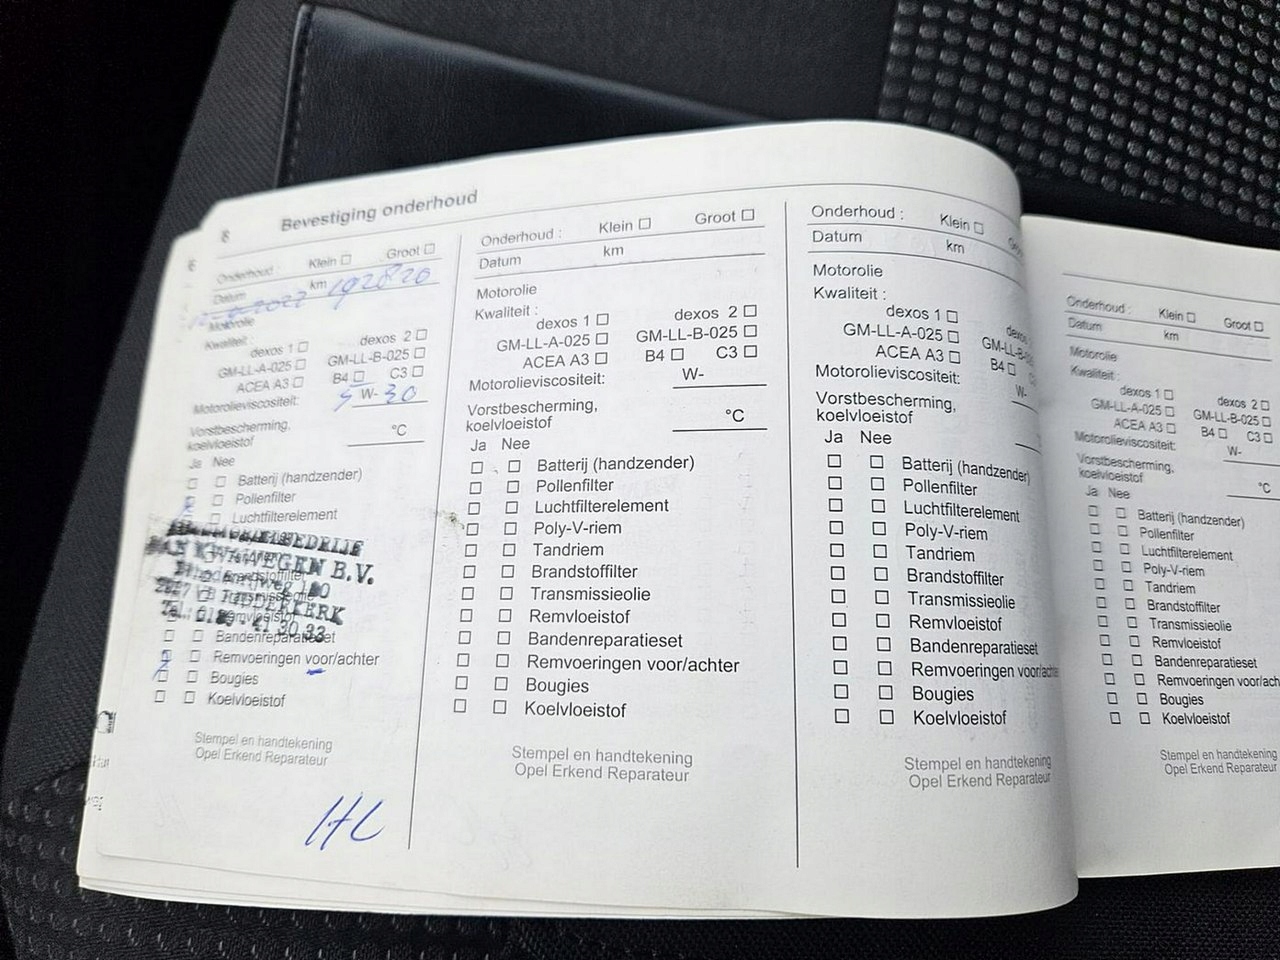 8
Bevestiging onderhoud
Onderhoud : Klein Groot
Datum km
2022 192820
Motorolie
Kwaliteit :
dexos 1 dexos 2
GM-LL-A-025 GM-LL-B-025
ACEA A3 B4 C3
Motorolieviscositeit: 5 W- 30
Vorstbescherming,
koelvloeistof °C
Ja Nee
Batterij (handzender)
Pollenfilter
Luchtfilterelement
B.V.
Bandenreparatieset
Remvoeringen voor/achter
Bougies
Koelvloeistof
Stempel en handtekening
Opel Erkend Reparateur
HL
Onderhoud : Klein Groot
Datum km
Motorolie
Kwaliteit :
dexos 1 dexos 2
GM-LL-A-025 GM-LL-B-025
ACEA A3 B4 C3
Motorolieviscositeit: W-
Vorstbescherming,
koelvloeistof °C
Ja Nee
Batterij (handzender)
Pollenfilter
Luchtfilterelement
Poly-V-riem
Tandriem
Brandstoffilter
Transmissieolie
Remvloeistof
Bandenreparatieset
Remvoeringen voor/achter
Bougies
Koelvloeistof
Stempel en handtekening
Opel Erkend Reparateur
Onderhoud : Klein
Datum km
Motorolie
Kwaliteit :
dexos 1 dexos
GM-LL-A-025 GM-LL-B-
ACEA A3 B4
Motorolieviscositeit: W-
Vorstbescherming,
koelvloeistof
Ja Nee
Batterij (handzender)
Pollenfilter
Luchtfilterelement
Poly-V-riem
Tandriem
Brandstoffilter
Transmissieolie
Remvloeistof
Bandenreparatieset
Remvoeringen voor/achte
Bougies
Koelvloeistof
Stempel en handtekening
Opel Erkend Reparateur
Onderhoud : Klein Groot
Datum km
Motorolie
Kwaliteit :
dexos 1 dexos 2
GM-LL-A-025 GM-LL-B-025
ACEA A3 B4 C3
Motorolieviscositeit: W-
Vorstbescherming,
koelvloeistof °C
Ja Nee
Batterij (handzender)
Pollenfilter
Luchtfilterelement
Poly-V-riem
Tandriem
Brandstoffilter
Transmissieolie
Remvloeistof
Bandenreparatieset
Remvoeringen voor/ach
Bougies
Koelvloeistof
Stempel en handtekening
Opel Erkend Reparateur